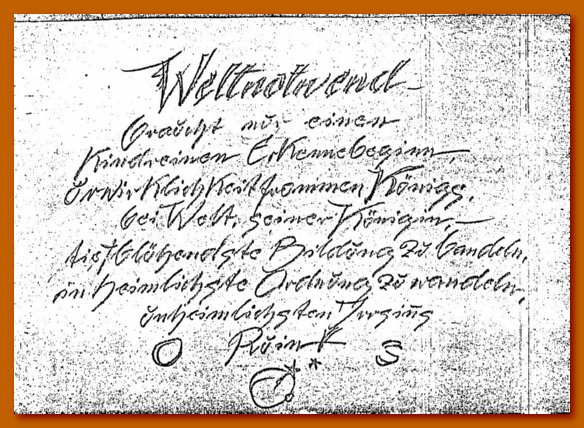 Weltnotwend
braucht nur einen
Kindreinen Erkennebeginn,
urwirklichkeitfrommen Königs,
bei Welt, seiner Königin, —
tiefblühendste Bildung zu bandeln,
in heimlichste Ordnung zu wandeln,
unheimlichsten Irrsinns
Ruin
O S